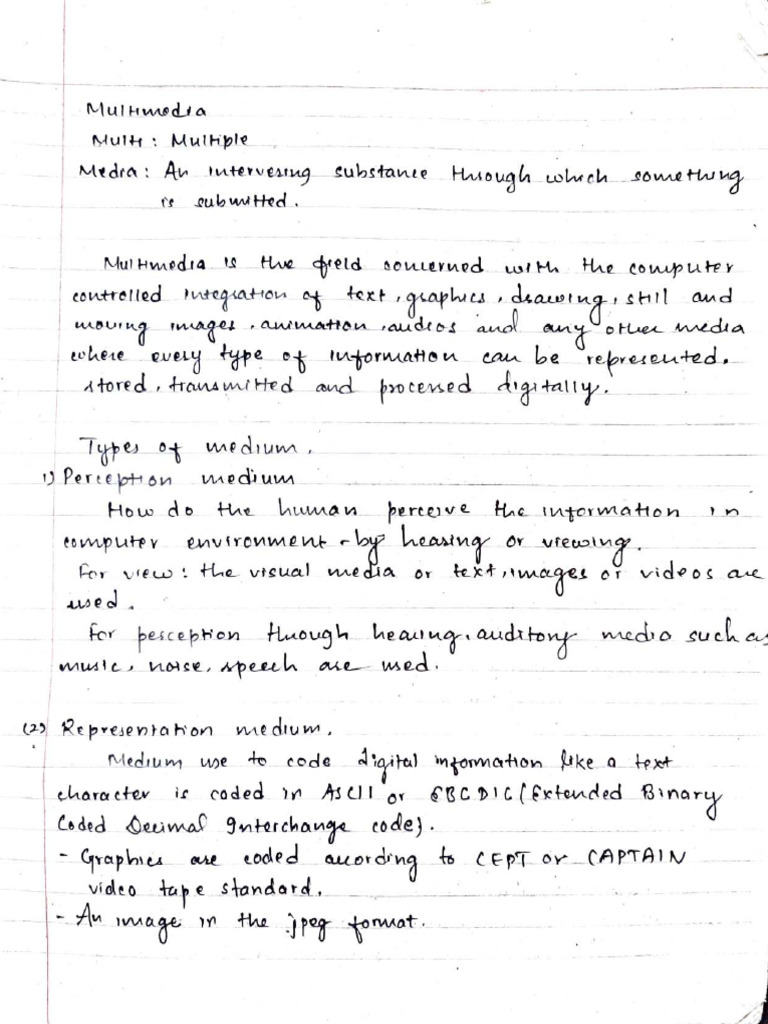 Multimedia
Multi : Multiple
Media : An intervering substance through which something
is submitted.
Multimedia is the field concerned with the computer
controlled integration of text, graphics, drawing, still and
moving images, animation, audios and any other media
where every type of information can be represented,
stored, transmitted and processed digitally.
Types of medium.
1) Perception medium
How do the human perceive the information in
computer environment - by hearing or viewing.
For view : the visual media or text, images or videos are
used.
For perception through hearing, auditory media such as
music, noise, speech are used.
(2) Representation medium.
Medium use to code digital information like a text
character is coded in ASCII or EBCDIC (Extended Binary
Coded Decimal Interchange code).
- Graphics are coded according to CEPT or CAPTAIN
video tape standard.
- An image in the jpeg format.